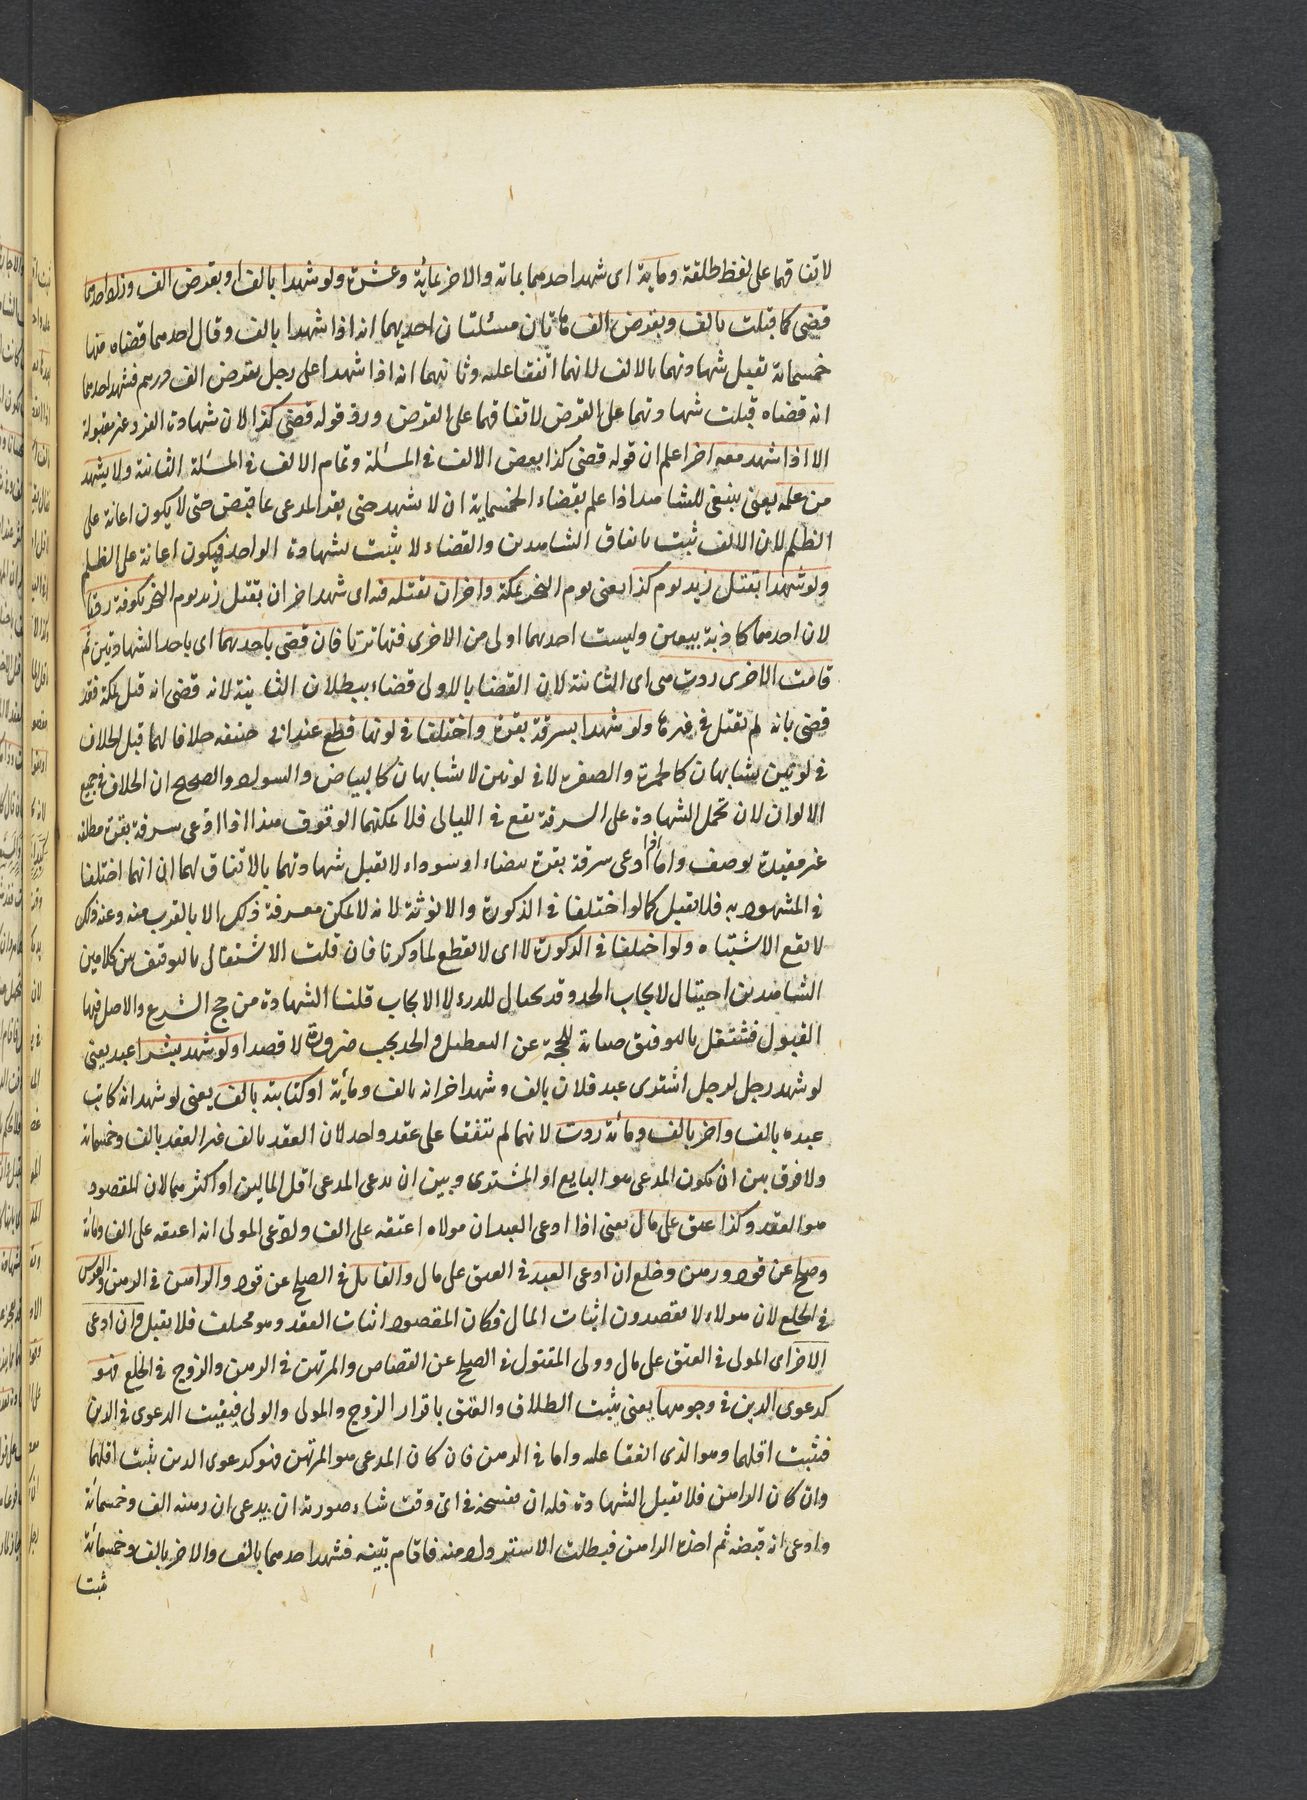 لاتفاقهما على لفظ طلقة ومائة اى شهد احدهما بمائة والاخر بمائة وعشرة ولو شهدا بالف او بقرض الف وزاد احدهما
قضى كذا قبلت بالف وبقرض الف هاتان مسئلتان احديهما انه اذا شهدا بالف وقال احدهما قضاه منها
خمسمائة تقبل شهادتهما بالالف لانهما اتفقا عليه وثانيهما انه اذا شهدا على رجل بقرض الف درهم فشهد احدهما
انه قضاه قبلت شهادتهما على القرض لاتفاقهما على القرض ورد قوله قضى كذا لان شهادة الفرد غير مقبولة
الا اذا شهد معه اخر اعلم ان قوله قضى كذا بعض الالف فى المسئلة وتمام الالف فى المسئلة الثانية ولا يشهد
من علمه يعنى ينبغى للشاهد اذا علم بقضاء الخمسماية ان لا يشهد حتى يقر المدعى بما قبض حتى لا يكون اعانة على
الظلم لان الالف ثبت باتفاق الشاهدين والقضاء لا يثبت بشهادة الواحد فيكون اعانة على الظلم
ولو شهدا بقتل زيد يوم كذا يعنى يوم النحر بمكة واخران بقتله فيه اى شهد اخران بقتل زيد يوم النحر بكوفة ردتا
لان احدهما كاذبة بيقين وليست احديهما اولى من الاخرى فتهاترتا فان قضى باحديهما اى باحد الشهادتين ثم
قامت الاخرى ردت هى اى الثانية لان القضا بالاولى قضاء ببطلان الثانية لانه قضى انه قتل بمكة فقد
قضى بانه لم يقتل فى غيرها ولو شهدا بسرقة بقرة واختلفا فى لونها قطع عند ابى حنيفه خلافا لهما قيل الخلاف
فى لونين يشابهان كالحمرة والصفرة لا فى لونين لا يشابهان كالبياض والسواد والصحيح ان الخلاف فى جميع
الالوان لان تحمل الشهادة على السرقة يقع فى الليالى فلا يمكنهما الوقوف هذا اذا ادعى سرقة بقرة مطلقه
غير مقيدة بوصف واما اذا ادعى سرقة بقرة بيضاء او سوداء لا تقبل شهادتهما بالاتفاق لهما ان انهما اختلفا
فى المشهود به فلا تقبل كما لو اختلفا فى الذكورة والانوثة لانه لا يمكن معرفة ذلك الا بالقرب منه وعند ذلك
لا يقع الاشتباه ولو اختلفا فى الذكورة لا اى لا يقطع لما ذكرنا فان قلت الاشتغال بالتوفيق بين كلامين
الشاهدين احتيال لايجاب الحد وقد يحتال للدرء لا الايجاب قلنا الشهادة من حجج الشرع والاصل فيها
القبول فنشتغل بالتوفيق صيانة للحجة عن التعطيل والحد يجب ضرورة لا قصدا ولو شهد بشرا عبد يعنى
لو شهد رجل لرجل اشترى عبد فلان بالف وشهد اخر انه بالف ومائة او كتابته بالف يعنى لو شهد انه كاتب
عبده بالف واخر بالف ومائة ردت لانهما لم يتفقا على عقد واحد لان العقد بالف غير العقد بالف وخمسمائة
ولا فرق بين ان يكون المدعى هو البايع او المشترى وبين ان يدعى المدعى اقل المالين او اكثرهما لان المقصود
هو العقد وكذا عتق على مال يعنى اذا ادعى العبد ان مولاه اعتقه على الف وادعى المولى انه اعتقه على الف ومائة
وصلح عن قود ورهن وخلع ان ادعى العبد فى العتق على مال والقاتل فى الصلح عن قود والراهن فى الرهن والعرس
فى الخلع لان هولاء لا يقصدون اثبات المال فكان المقصود اثبات العقد وهو مختلف فلا يقبل وان ادعى
الاخر اى المولى فى العتق على مال وولى المقتول فى الصلح عن القصاص والمرتهن فى الرهن والزوج فى الخلع فهو
كدعوى الدين فى وجوهها يعنى يثبت الطلاق والعتق باقرار الزوج والمولى والولى فبقيت الدعوى فى الدين
فيثبت اقلهما وهو الذى اتفقا عليه واما فى الرهن فان كان المدعى هو المرتهن فهو كدعوى الدين يثبت اقلهما
وان كان الراهن فلا تقبل الشهادة فله ان يفسخه فى اى وقت شاء صورته ان يدعى ان رهنه الف وخمسمائة
وادعى انه قبضه ثم اخذه الراهن فبطلت الاسترداد منه فاقام بينه فشهد احدهما بالف والاخر بالف وخمسمائة
ثبتا